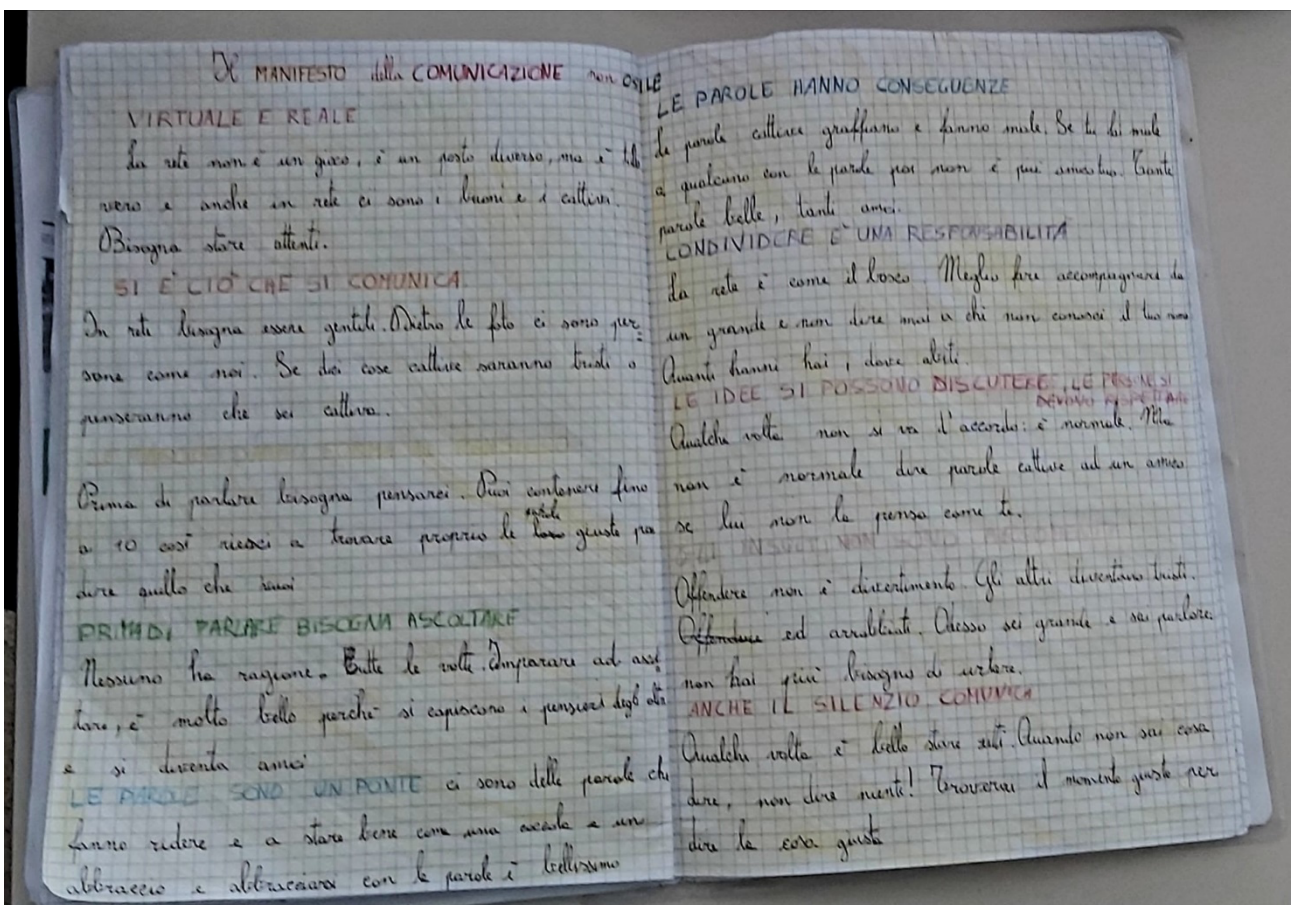 Il MANIFESTO della COMUNICAZIONE non OSILE
VIRTUALE E REALE
La rete non è un gioco, è un posto diverso, ma è
vero e anche in rete ci sono i buoni e i cattivi.
Bisogna stare attenti.
SI È CIÒ CHE SI COMUNICA
In rete bisogna essere gentili. Dietro le foto ci sono per
sone come noi. Se dici cose cattive saranno tristi o
penseranno che sei cattivo.
Prima di parlare bisogna pensarci. Puoi contenere fino
a 10 così riesci a trovare proprio le parole giuste per
dire quello che
PRIMA DI PARLARE BISOGNA ASCOLTARE
Nessuno ha ragione. Tutte le volte. Imparare ad ascol
tare, è molto bello perché si capiscono i pensieri degli altri
e si diventa amici
LE PAROLE SONO UN PONTE ci sono delle parole che
fanno ridere e a stare bene come una e un
abbraccio e abbracciarsi con le parole è bellissimo
LE PAROLE HANNO CONSEGUENZE
Le parole cattive graffiano e fanno male. Se tu fai male
a qualcuno con le parole poi non è più amico tuo. Tante
parole belle, tanti amici.
CONDIVIDERE È UNA RESPONSABILITÀ
La rete è come il bosco. Meglio farsi accompagnare da
un grande e non dire mai a chi non conosci il tuo nome
Quanti hanni hai, dove abiti.
LE IDEE SI POSSONO DISCUTERE, LE PERSONE SI
DEVONO RISPETTARE
Qualche volta non si va d'accordo: è normale. Ma
non è normale dire parole cattive ad un amico
se lui non la pensa come te.
GLI INSULTI NON SONO
Offendere non è divertimento. Gli altri diventano tristi.
Offendere ed arrabbiati. Adesso sei grande e sai parlare
non hai più bisogno di urlare.
ANCHE IL SILENZIO COMUNICA
Qualche volta è bello stare zitti. Quando non sai cosa
dire, non dire nienti! Troverai il momento giusto per
dire la cosa giusta